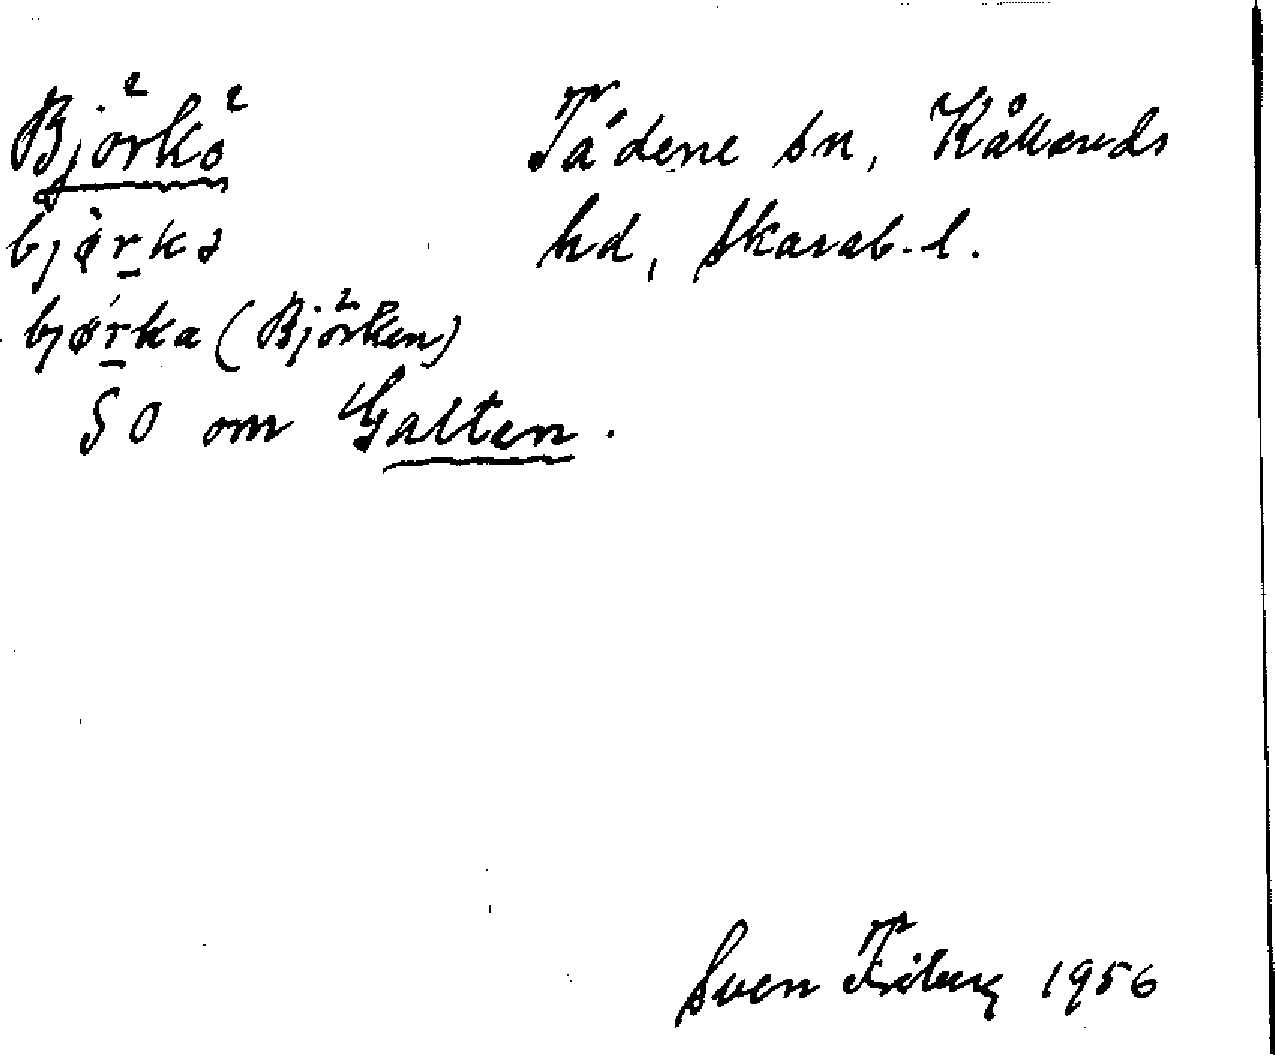 Björkö
Tådene sn, Kållands
bjørkə
hd, Skarab-l.
bjørka (Björken)
SO om Galten.
Sven Friberg 1956